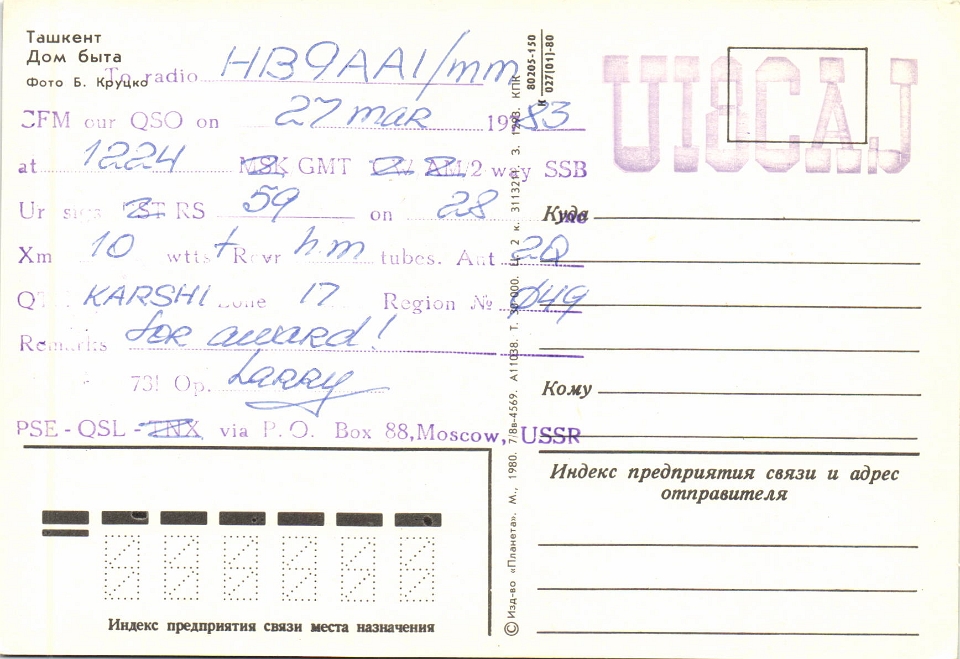 Ташкент
Дом быта
Фото Б. Круцко
To radio HB9AAI/mm
CFM our QSO on 27 mar 1983
at 1224 MSK GMT CW AM/2 way SSB
Ur sigs RST RS 59 on 28 mc
Xm 10 wtts Rcvr h.m tubes. Ant 2Q
QTH KARSHI Zone 17 Region № 049
Remarks for award!
73! Op. Larry
PSE-QSL-TNX via P.O. Box 88, Moscow, USSR
Индекс предприятия связи места назначения
80205-150
К 027(01)-80
© Изд-во «Планета». М., 1980. 7/8в-4569. А11038. Т. 30.000. Ц. 2 к. 3113211. З. 1293. КПК
UI8CAJ
Куда
Кому
Индекс предприятия связи и адрес
отправителя